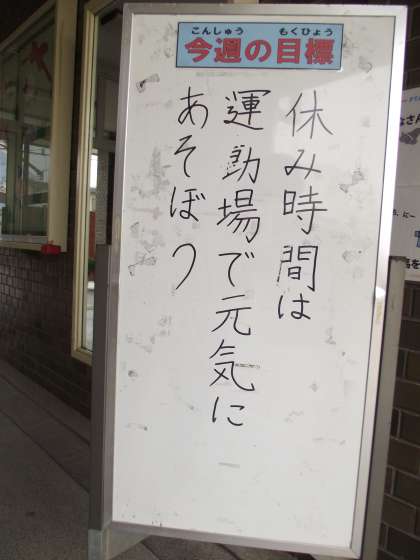 こんしゅう もくひょう
今週の目標
休み時間は
運動場で元気に
あそぼう